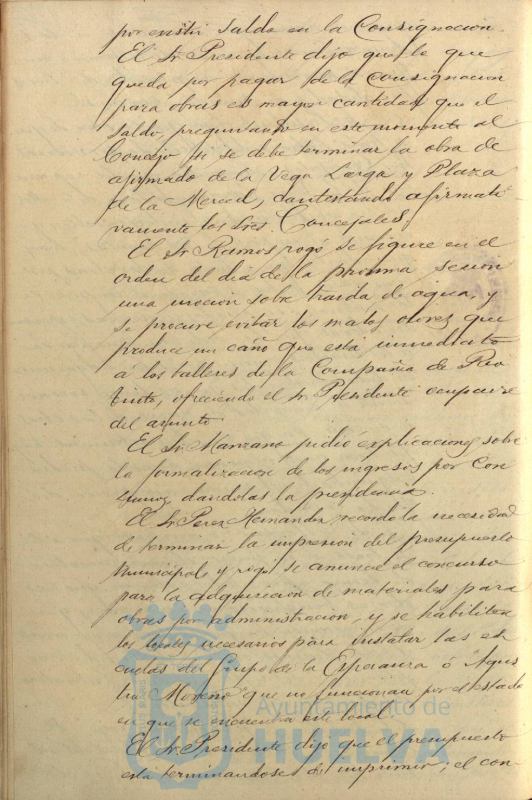 por existir saldo en la Consignación.
El Sr. Presidente dijo que lo que
queda por pagar de la consignacion
para obras es mayor cantidad que el
saldo, preguntando en este momento al
Concejo si se debe terminar la obra de
afirmado de la Vega Larga y Plaza
de la Merced, contestando afirmati
vamente los Sres. Concejales.
El Sr. Ramos rogó se figure en el
orden del dia de la proxima sesion
una mocion sobre traida de agua, y
se procure evitar los malos olores que
produce un caño que está inmediato
á los talleres de la Compañia de Rio
tinto, ofreciendo el Sr. Presidente ocuparse
del asunto.
El Sr. Manzano pidió explicaciones sobre
la formalizacion de los ingresos por Con
sumos, dandolas la presidencia.
El Sr. Perez Hernandez recordó la necesidad
de terminar la impresion del presupuesto
Municipal y rogó se anuncie el concurso
para la adquisicion de materiales para
obras por administracion, y se habiliten
los locales necesarios para instalar las es
cuelas del Grupo de la Esperanza ó "Agus
tin Moreno" que no funcionan por el estado
en que se encuentra este local.
El Sr. Presidente dijo que el presupuesto
está terminandose de imprimir; el con-
Ayuntamiento de
HUELVA